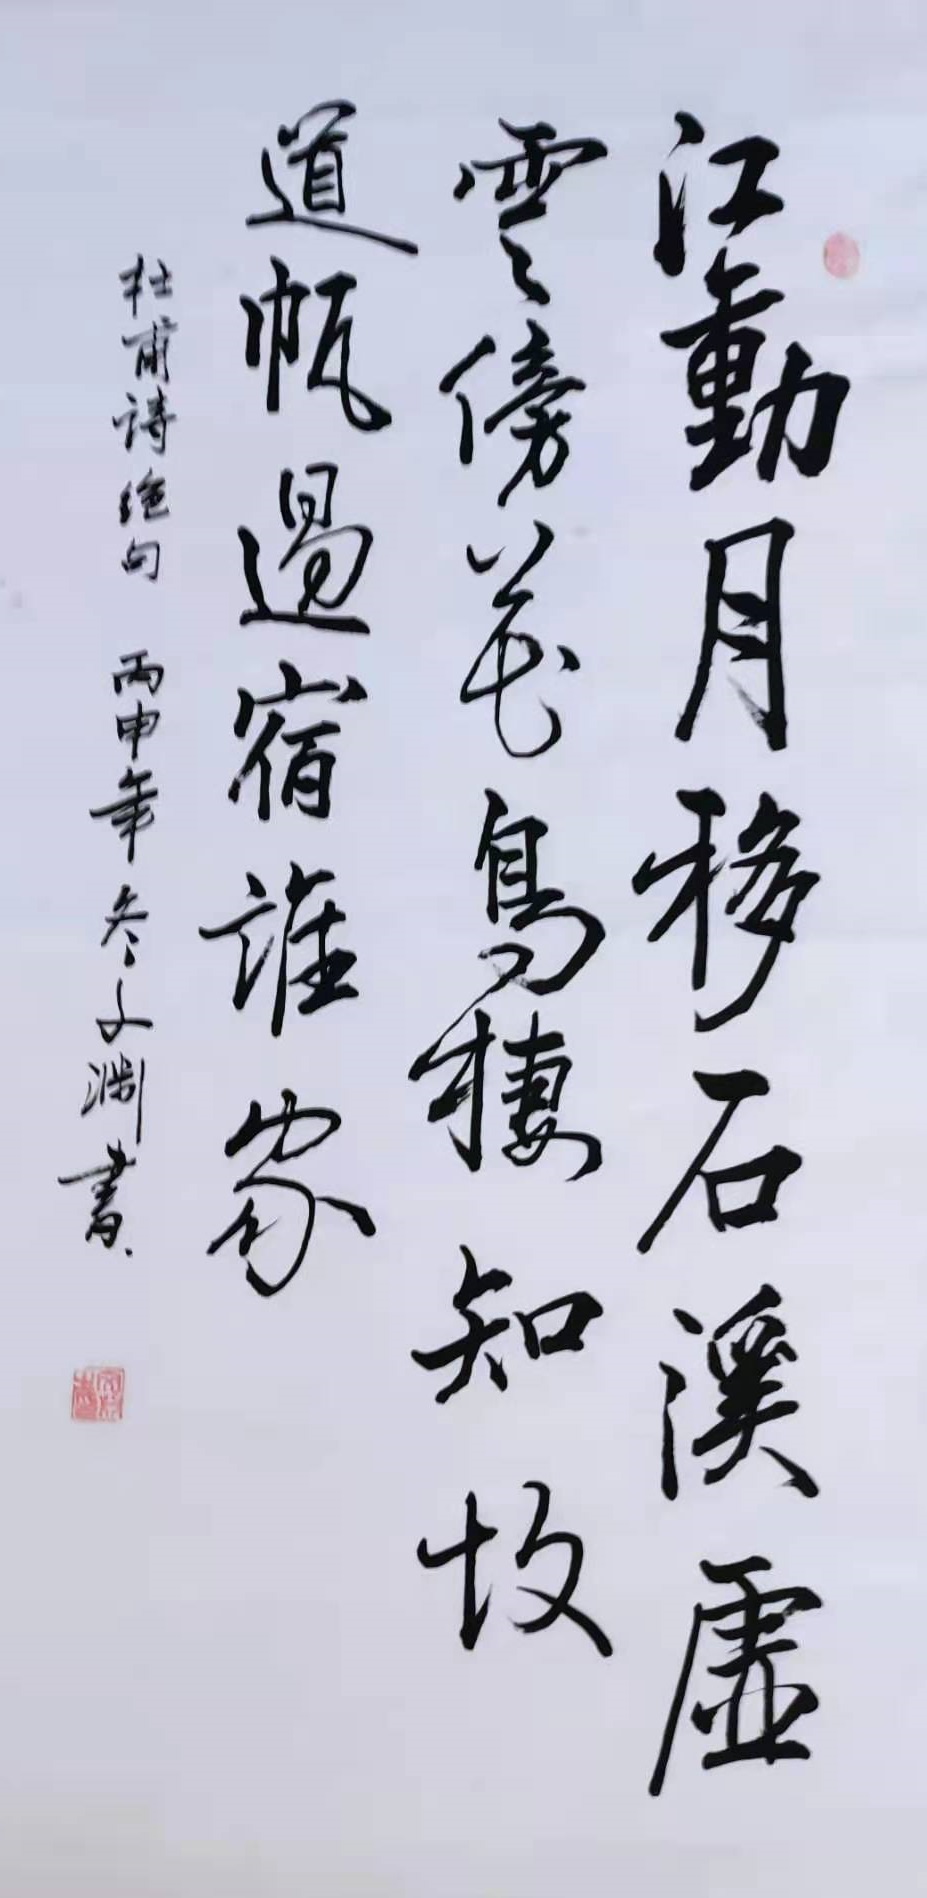 江動月移石溪虛
雲傍花鳥棲知故
道帆過宿誰家
杜甫詩絕句 丙申年冬文渊書